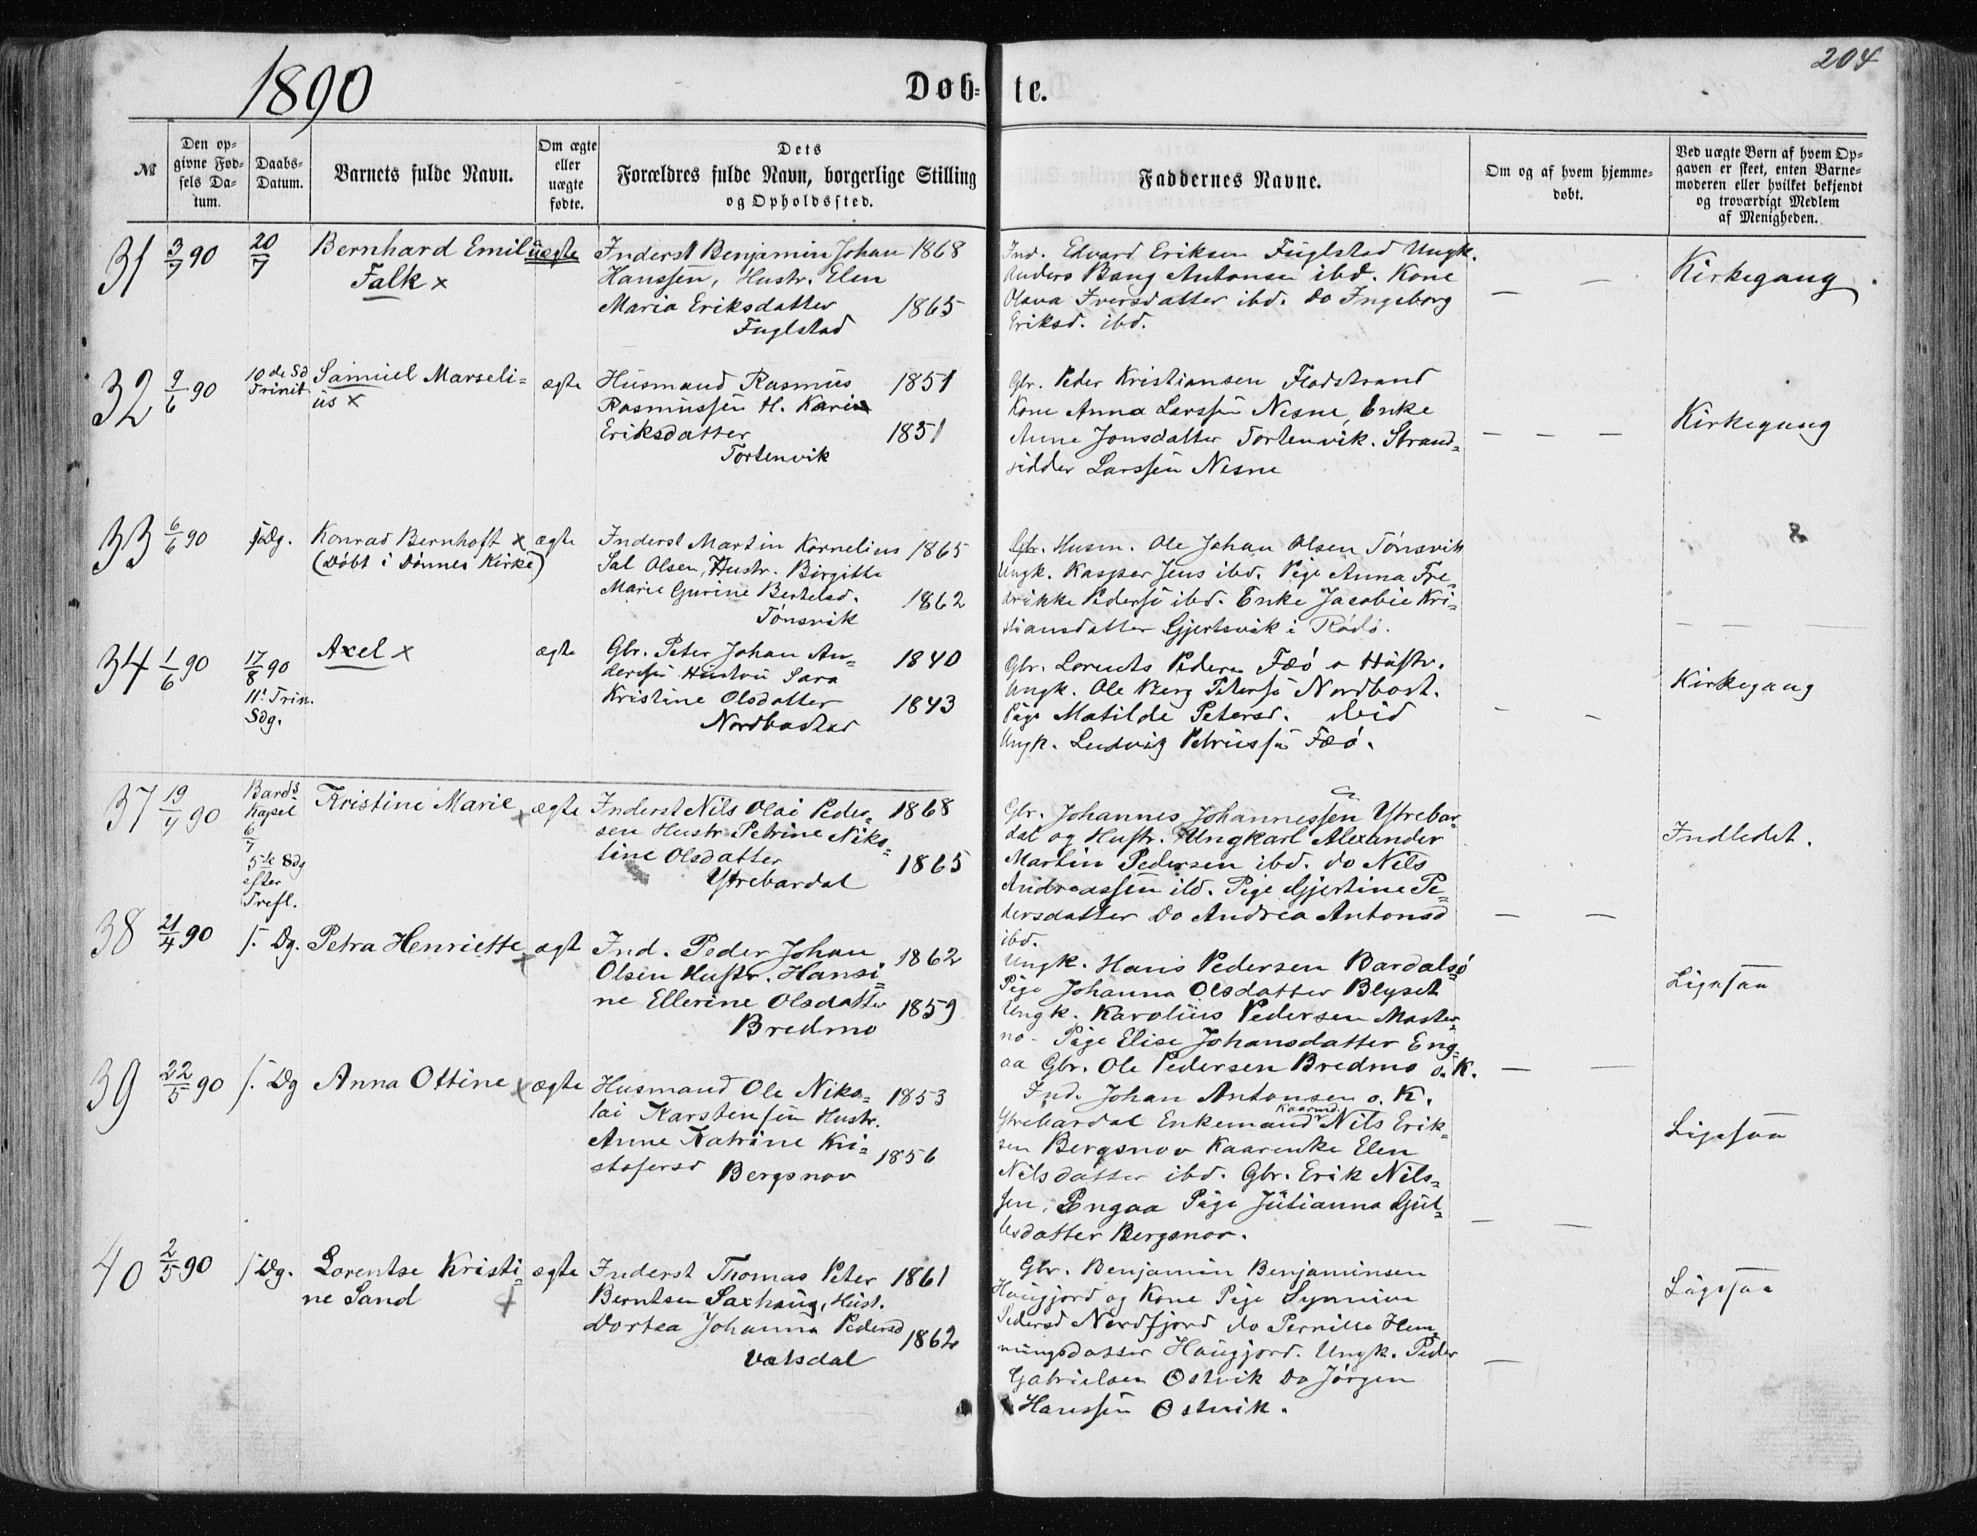 1890
Døbte.
204
№
Den opgivne Fødsels Datum.
Daabs-Datum.
Barnets fulde Navn.
Om ægte eller uægte fødte.
Dets Forældres fulde Navn, borgerlige Stilling og Opholdssted.
Faddernes Navne.
Om og af hvem hjemmedøbt.
Ved uægte Børn af hvem Opgaven er skeet, enten Barnemoderen eller hvilket bekjendt og troværdigt Medlem af Menigheden.
31 3/7 90 20/7 Bernhard Emil uægte
Falk x
Inderst Benjamin Johan 1868
Hanssen, Hustr. Elen
Maria Eriksdatter 1865
Fuglstad
Ind. Edvard Eriksen Fuglstad Ungk.
Anders Bang Antonsen ibd. Kone
Olava Iversdatter ibd. do Ingeborg
Eriksd. ibd.
— —
Kirkegang
32 9/6 90 10de Sd
Trinit
Samuel Marseli=
us x
ægte
Husmand Rasmus 1851
Rasmussen H. Karin
Eriksdatter 1851
Tortenvik
Gbr. Peder Kristiansen Flodstrand
Kone Anna Larssen Nesne, Enke
Anne Jonsdatter Tortenvik. Strand=
sidder Larssen Nesne
— — —
Kirkegang
33 6/6 90 s. Dg. Konrad Bernhoft x ægte
(Døbt i Dønnes Kirke)
Inderst Martin Kornelius 1865
Sal Olsen, Hustr. Birgitte
Marie Gurine Bertelsd. 1862
Tonsvik
Gbr. Husm. Ole Johan Olsen Tonsvik
Ungk. Kasper Jens ibd. Pige Anna Fre=
drikke Peders ibd. Enke Jacobie Kri=
stiansdatter Gjertsvik i Rødø.
— — —
34 1/6 90 17/8 90
11. Trin.
Sdg.
Axel x
ægte
Gbr. Peter Johan An= 1840
derssen Hustru Sara
Kristine Olsdatter 1843
Nordbostad
Gbr. Lorents Peders Fæø o Hustr.
Ungk. Ole Berg Peterss Nordbost.
Pige Matilde Petersd. ibid
Ungk. Ludvig Petrussen Fæø.
— —
Kirkegang
37 19/4 90 Bards
Kapel
6/7
5te Sdg
efter
Trefl.
Kristine Marie x ægte
Inderst Nils Olai Peder= 1868
sen Hustr Petrine Niko=
line Olsdatter 1865
Ytrebardal
Gbr. Johannes Johannessen Ytrebar=
dal og Hustr. Ungkarl Alexander
Martin Pedersen ibd. do Nils
Andreassen ibd. Pige Gjertine Pe=
dersdatter Do Andrea Antonsd
ibd.
— —
Indledet.
38 21/4 90 s. Dg. Petra Henriette x ægt
Ind. Peder Johan 1862
Olsen Hustr. Hansi=
ne Ellerine Olsdatter 1859
Bredmo
Ungk. Hans Pedersen Bardalsø
Pige Johanna Olsdatter Blyset
Ungk. Karolius Pedersen Master=
no- Pige Elise Johansdatter Eng=
aa Gbr. Ole Pedersen Bredmo o. K.
— —
Ligesaa
39 22/5 90 s. Dg Anna Ottine x ægte
Husmand Ole Niko= 1853
lai Karstensen Hustr.
Anne Katrine Kri= 1856
stofersd Bergsnov
Ind. Johan Antonsen o. K.
Ytrebardal Enkemand Kaarmd. Nils Erik=
sen Bergsnov Kaarenke Elen
Nilsdatter ibd. Gbr. Erik Nils=
sen, Engaa Pige Julianna Gjul=
lesdatter Bergsnov.
— —
Ligesaa
40 2/5 90 s. Dg. Lorentse Kristi= ægte
ne Sand x
Inderst Thomas Peter 1861
Berntsen Saxhaug, Hust.
Dortea Johanna Pedersd 1862
Valsdal
Gbr. Benjamin Benjaminsen
Haugjord og Kone Pige Synnive
Pedersd Nordfjord do Pernille Hem=
mingsdatter Haugjord. Ungk. Peder
Gabrielsen Ostvik Do Jørgen
Hanssen Ostvik.
—
Ligesaa